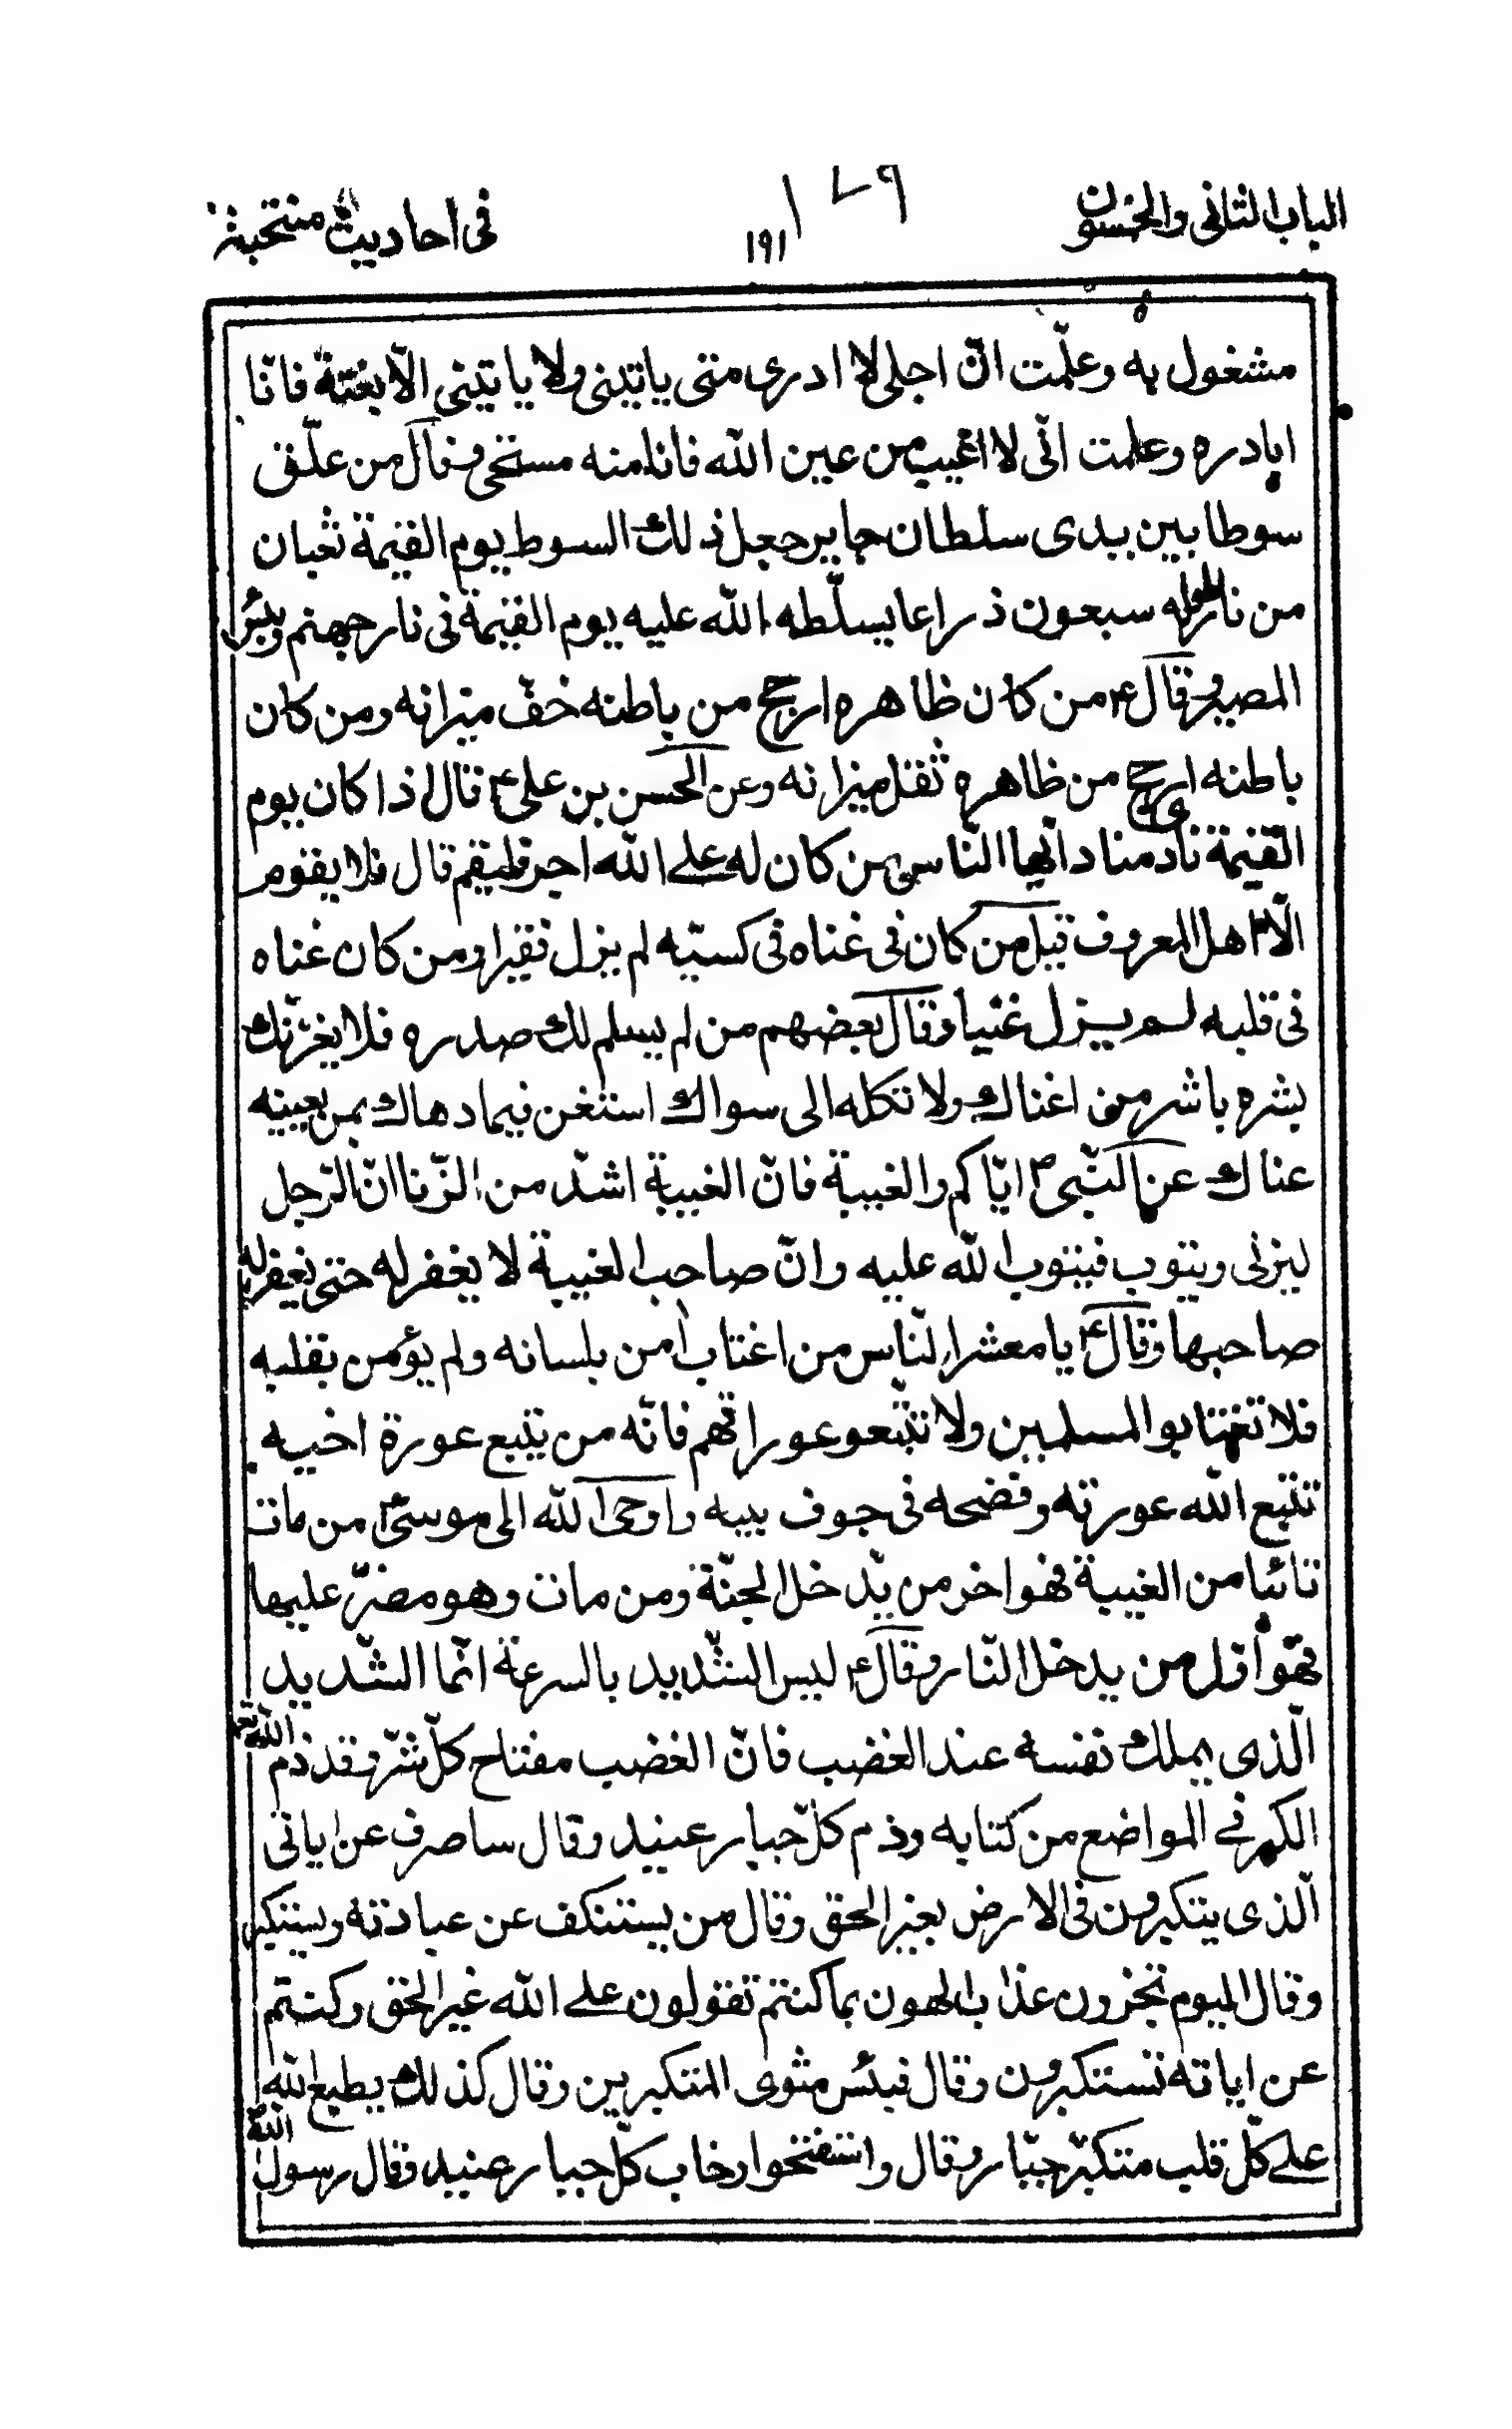 الباب الثانى والخمسون
١٩١
فى احاديث منتخبة
مشغول به وعلّمت انّ اجلى لا ادرى متى ياتينى ولا ياتينى الّا بغتة فانا
ابادره وعلمت انّى لا اغيب من عين الله فانا منه مستحى وقال من علّق
سوطا بين يدى سلطان جاير جعل ذلك السوط يوم القيمة ثعبان
من نار طوله سبعون ذراعا يسلّطه الله عليه يوم القيمة فى نار جهنم وبئس
المصير وقال ع من كان ظاهره ارجح من باطنه خفّ ميزانه ومن كان
باطنه ارجح من ظاهره ثقل ميزانه وعن الحسن بن على ع قال اذا كان يوم
القيمة نادى مناد ايّها النّاس من كان له على الله اجر فليقم قال فلا يقوم
الّا اهل المعروف قيل من كان فى غناه فى كسبه لم يزل فقيرا ومن كان غناه
فى قلبه لم يزل غنيا وقال بعضهم من لم يسلم لك صدره فلا يغرّنك
بشره باشر من اغناك ولا تكله الى سواك استغن فيما دهاك بمن بعينه
عناك عن النّبى ص ايّاكم والغيبة فانّ الغيبة اشدّ من الزّنا انّ الرّجل
ليزنى ويتوب فيتوب الله عليه وانّ صاحب الغيبة لا يغفر له حتى يغفر له
صاحبها وقال ع يا معشر النّاس من اغتاب امن بلسانه ولم يؤمن بقلبه
فلا تغتابوا المسلمين ولا تتّبعو عوراتهم فانّه من يتبع عورة اخيه
تتبع الله عورته وفضحه فى جوف بيبه واوحى الله الى موسى ع من مات
تائبا من الغيبة فهو اخر من يدخل الجنّة ومن مات وهو مصرّ عليها
فهو اوّل من يدخل النّار وقال ع ليس الشّديد بالسرعة انّما الشّديد
الّذى يملك نفسه عند الغضب فانّ الغضب مفتاح كلّ شرّ وقد ذم الله تعم
الكبر فى المواضع من كتابه وذم كلّ جبار عنيد وقال ساصرف عن اياتى
الّذى يتكبرون فى الارض بغير الحق وقال من يستنكف عن عبادته ويستكبر
وقال اليوم تجزون عذاب الهون بما كنتم تقولون على الله غير الحق وكنتم
عن اياته تستكبرون وقال فبئس مثوى المتكبرين وقال كذلك يطبع الله
على كلّ قلب متكبّر جبّار وقال واستفتحوا وخاب كلّ جبار عنيد وقال رسول الله